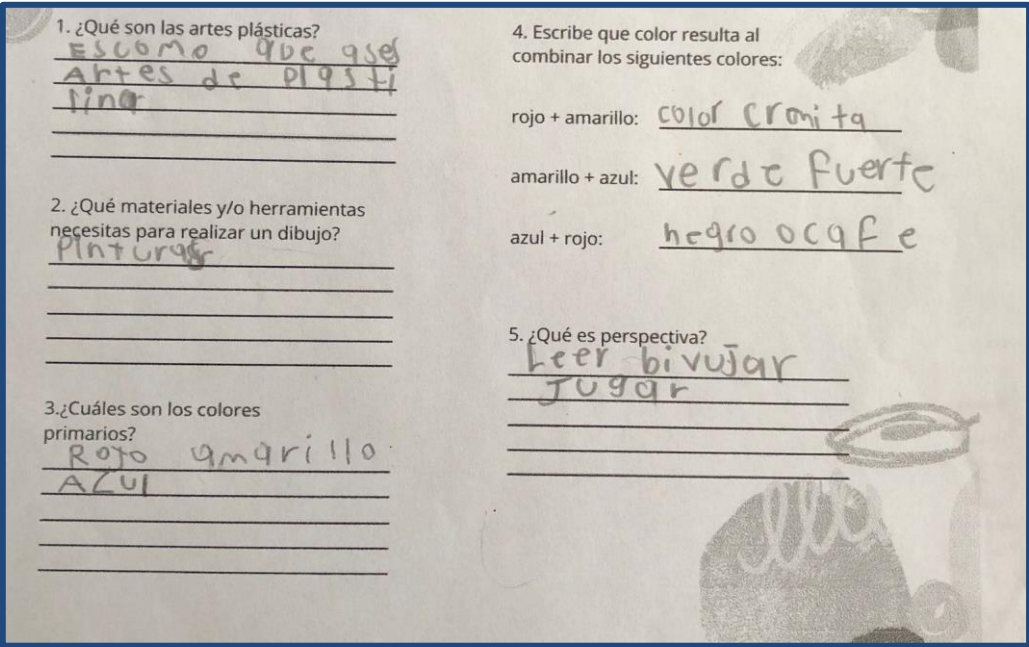 1. ¿Qué son las artes plásticas?
Escomo que ases
Artes de plasti
lina
2. ¿Qué materiales y/o herramientas
necesitas para realizar un dibujo?
Pinturas
3.¿Cuáles son los colores
primarios?
Rojo amarillo
AZul
4. Escribe que color resulta al
combinar los siguientes colores:
rojo + amarillo: color cromita
amarillo + azul: verde fuerte
azul + rojo: negro ocafe
5. ¿Qué es perspectiva?
Leer bivujar
Jugar